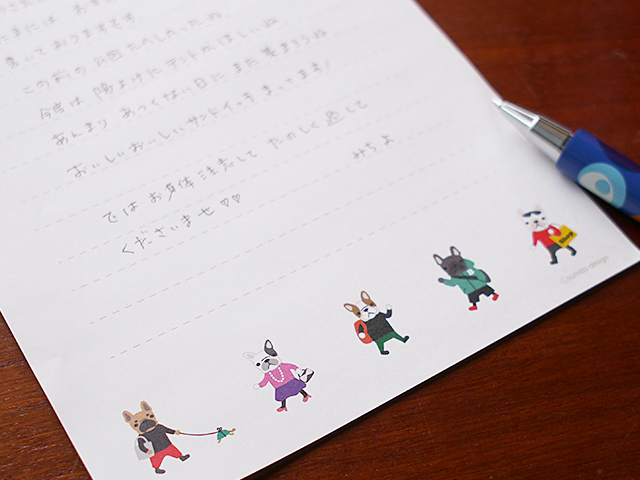 たまには お手
書いておりますです
この前の公園たのしかったね
今度は、陽よけにテントがほしいね
あんまり あつくない日に また集まろうね
おいしいおいしいサンドイッチまってます!
ではお身体注意して たのしく過して
くださいませ♡♡
みちよ